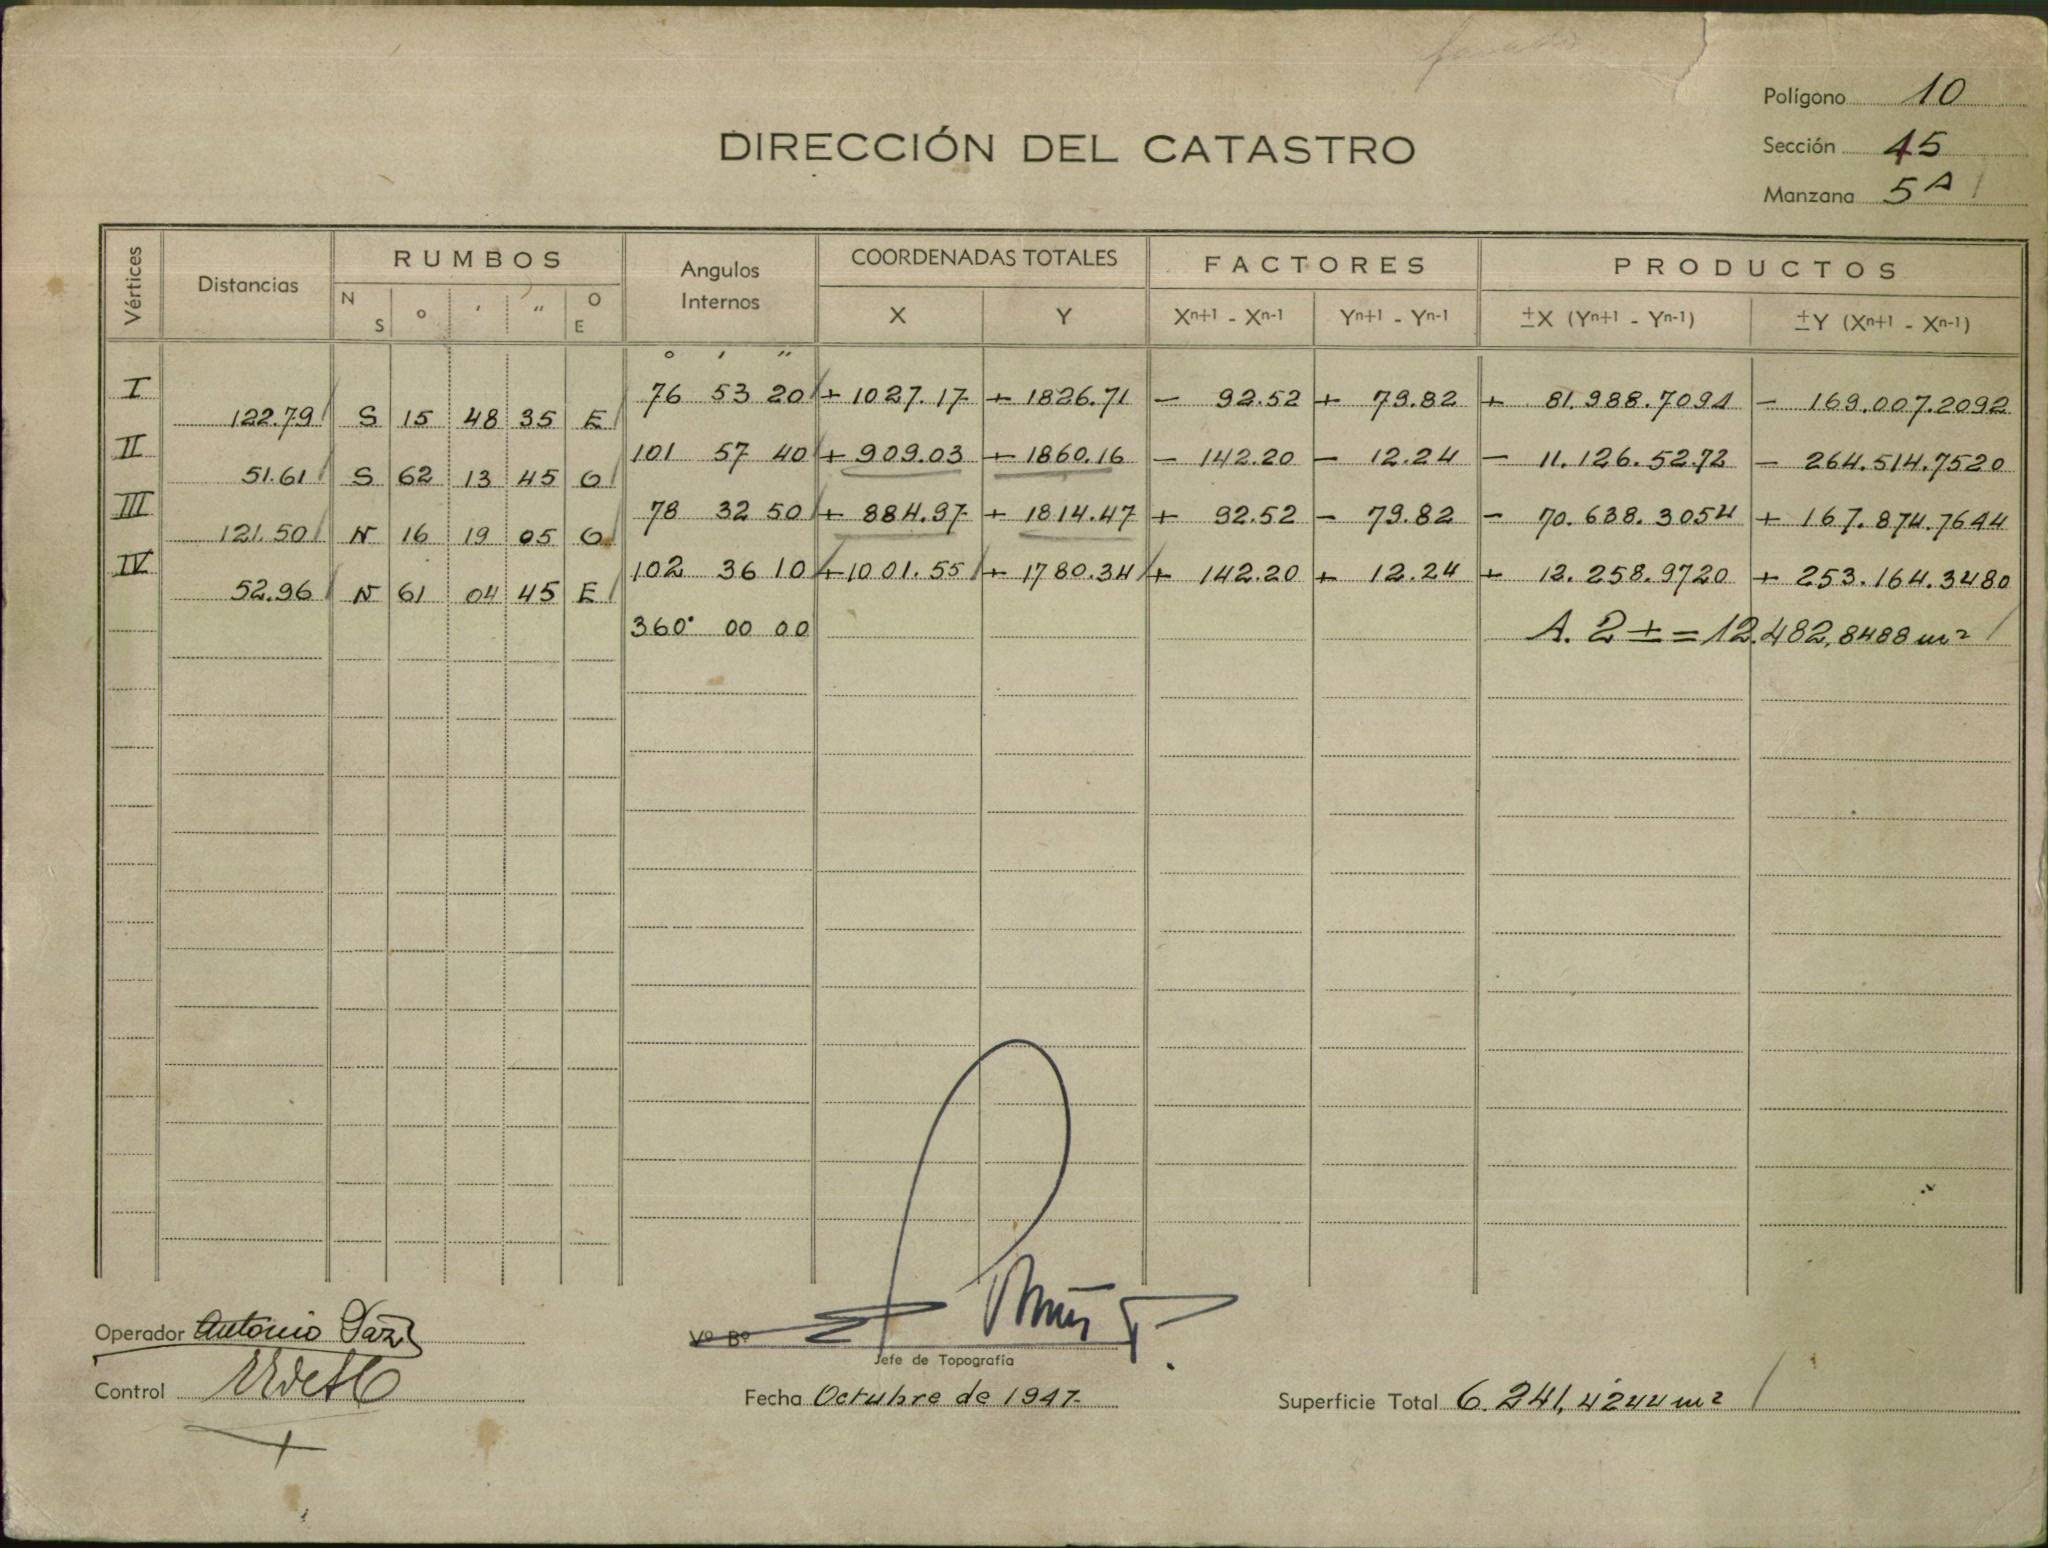 Polígono 10
DIRECCIÓN DEL CATASTRO
Sección 45
Manzana 5A
Vértices Distancias RUMBOS Angulos Internos COORDENADAS TOTALES FACTORES PRODUCTOS
N S ° ' " O E X Y Xn+1 - Xn-1 Yn+1 - Yn-1 ±X (Yn+1 - Yn-1) ±Y (Xn+1 - Xn-1)
° ' "
I 76 53 20 + 1027.17 + 1826.71 - 92.52 + 79.82 + 81.988.7094 - 169.007.2092
122.79 S 15 48 35 E
II 101 57 40 + 909.03 + 1860.16 - 142.20 - 12.24 - 11.126.5272 - 264.514.7520
51.61 S 62 13 45 O
III 78 32 50 + 884.97 + 1814.47 + 92.52 - 79.82 - 70.638.3054 + 167.874.7644
121.50 N 16 19 05 O
IV 102 36 10 + 1001.55 + 1780.34 + 142.20 + 12.24 + 12.258.9720 + 253.164.3480
52.96 N 61 04 45 E
360° 00 00 A. 2 ± = 12.482,8488 m²
Operador Antonio
Vº Bº
Jefe de Topografía
Control
Fecha Octubre de 1947.
Superficie Total 6.241,4244 m²